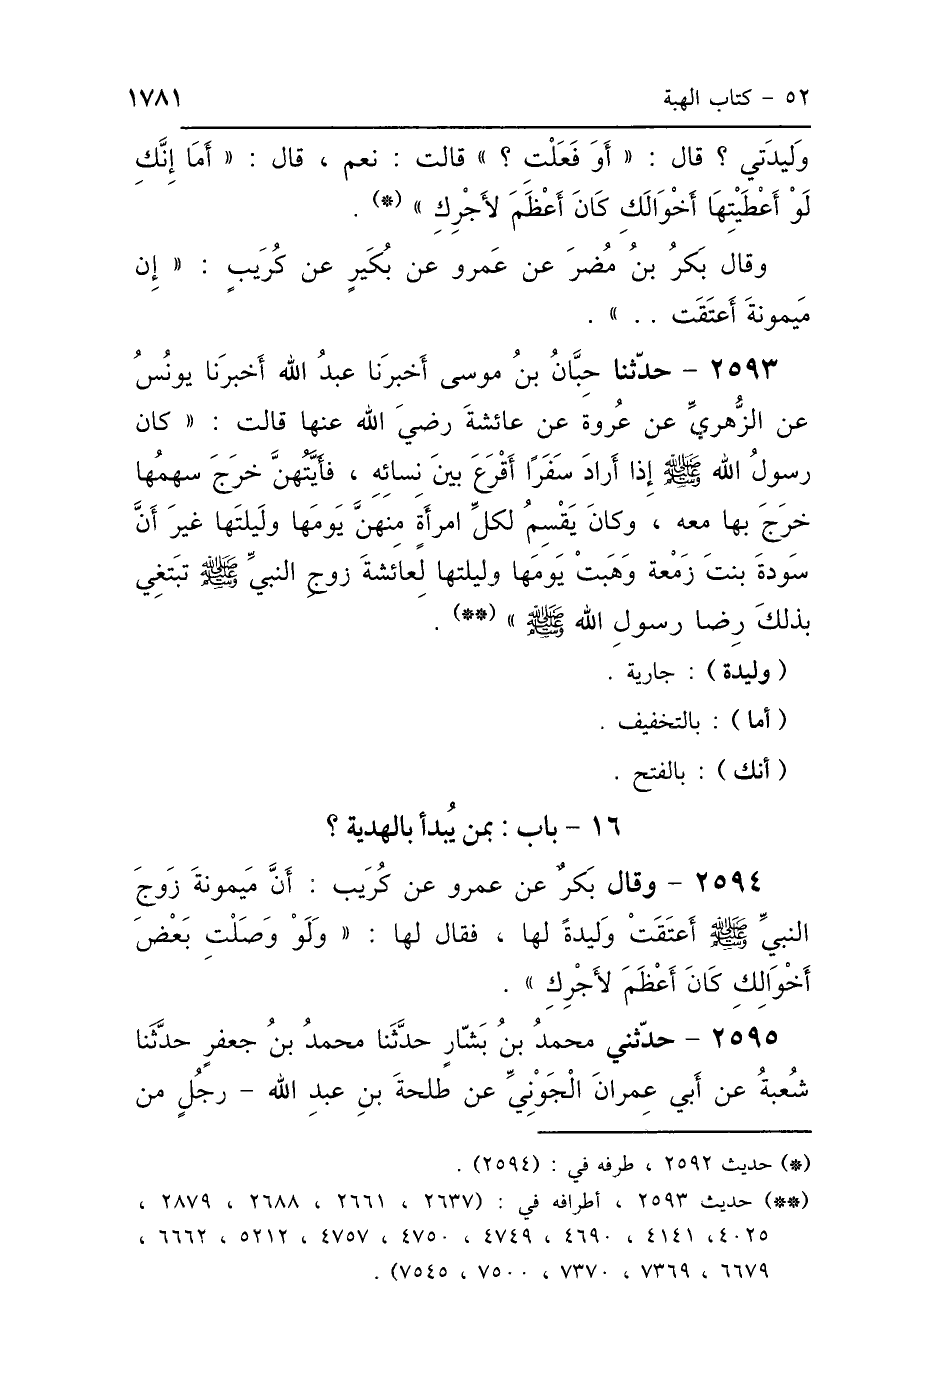 ٥٢ - كتاب الهبة ١٧٨١
وَليدَتي ؟ قال : « أَوَ فَعَلْتِ ؟ » قالت : نعم ، قال : « أَمَا إنَّكِ
لَوْ أَعْطَيْتِهَا أَخْوَالَكِ كَانَ أَعْظَمَ لأَجْرِكِ » (*) .
وقال بَكرُ بنُ مُضرَ عن عَمرو عن بُكَيرٍ عن كُرَيبٍ : « إن
مَيمونةَ أَعتَقَت . . » .
٢٥٩٣ - حدّثنا حِبَّانُ بنُ موسى أَخبرَنا عبدُ الله أَخبرَنا يونُسُ
عن الزُّهريِّ عن عُروة عن عائشةَ رضيَ الله عنها قالت : « كان
رسولُ الله ﷺ إذا أَرادَ سَفَرًا أَقْرَعَ بينَ نِسائِهِ ، فأَيَّتُهنَّ خرَجَ سهمُها
خرَجَ بها معه ، وكانَ يَقْسِمُ لكلِّ امرأَةٍ مِنهنَّ يَومَها ولَيلتَها غيرَ أَنَّ
سَودةَ بنتَ زَمْعة وَهَبتْ يَومَها وليلتها لعائشةَ زوجِ النبيِّ ﷺ تبَتغي
بذلكَ رِضا رسولِ الله ﷺ » (**) .
( وليدة ) : جارية .
( أما ) : بالتخفيف .
( أنك ) : بالفتح .
١٦ - باب : بمن يُبدأ بالهدية ؟
٢٥٩٤ - وقال بَكرٌ عن عمرو عن كُرَيب : أَنَّ مَيمونةَ زَوجَ
النبيِّ ﷺ أَعتَقَتْ وَليدةً لها ، فقال لها : « ولَوْ وَصَلْتِ بَعْضَ
أَخْوَالِكِ كَانَ أَعْظَمَ لأَجْرِكِ » .
٢٥٩٥ - حدّثني محمدُ بنُ بَشّارٍ حدَّثَنا محمدُ بنُ جعفرٍ حدَّثَنا
شُعبةُ عن أَبي عِمرانَ الْجَوْنِيِّ عن طلحةَ بنِ عبدِ الله - رجُلٍ من
(*) حديث ٢٥٩٢ ، طرفه في : (٢٥٩٤) .
(**) حديث ٢٥٩٣ ، أطرافه في : (٢٦٣٧ ، ٢٦٦١ ، ٢٦٨٨ ، ٢٨٧٩ ،
٤٠٢٥، ٤١٤١ ، ٤٦٩٠ ، ٤٧٤٩ ، ٤٧٥٠ ، ٤٧٥٧ ، ٥٢١٢ ، ٦٦٦٢ ،
٦٦٧٩ ، ٧٣٦٩ ، ٧٣٧٠ ، ٧٥٠٠ ، ٧٥٤٥) .